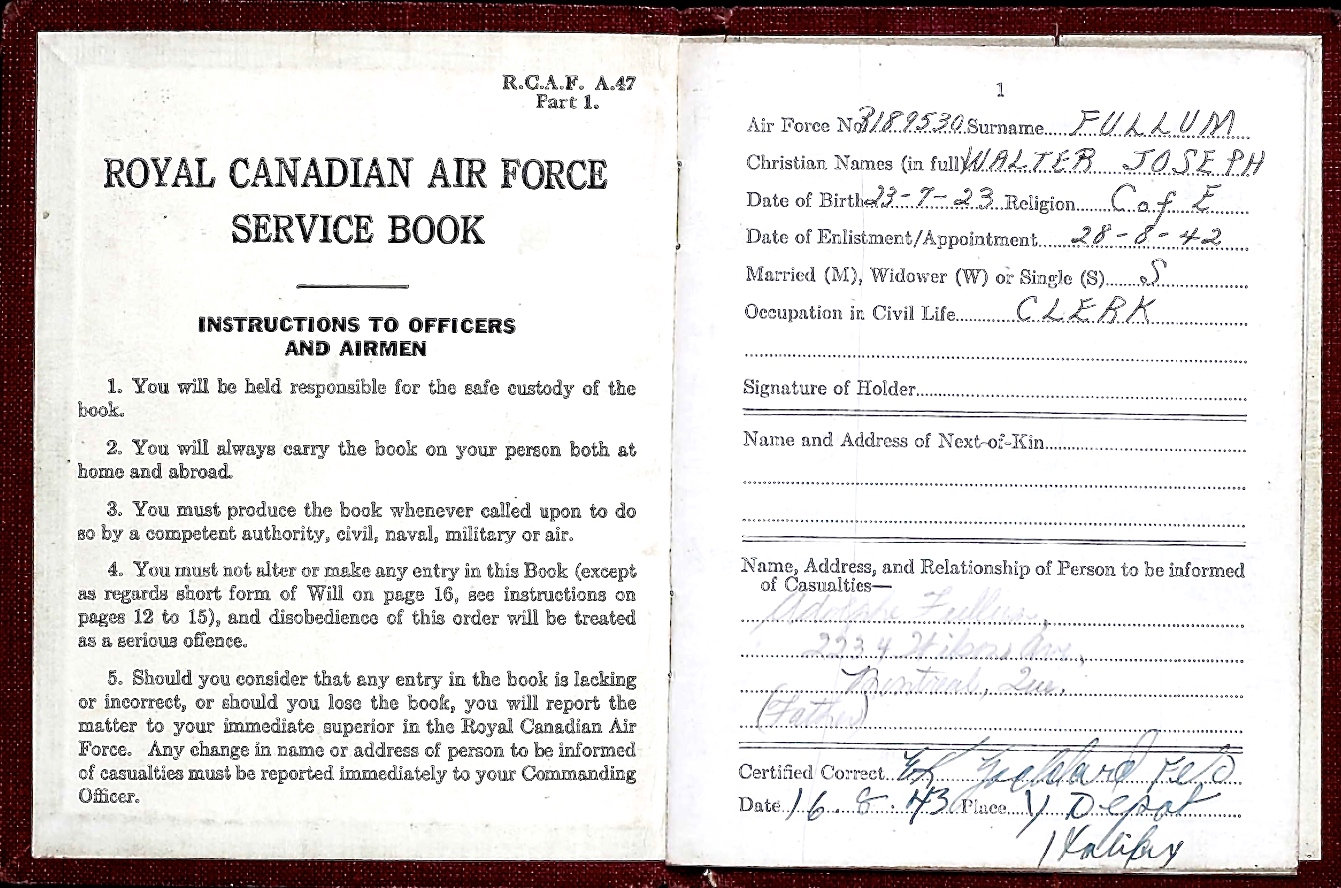 R.C.A.F. A.47
Part 1.
ROYAL CANADIAN AIR FORCE
SERVICE BOOK
INSTRUCTIONS TO OFFICERS
AND AIRMEN
1. You will be held responsible for the safe custody of the
book.
2. You will always carry the book on your person both at
home and abroad.
3. You must produce the book whenever called upon to do
so by a competent authority, civil, naval, military or air.
4. You must not alter or make any entry in this Book (except
as regards short form of Will on page 16, see instructions on
pages 12 to 15), and disobedience of this order will be treated
as a serious offence.
5. Should you consider that any entry in the book is lacking
or incorrect, or should you lose the book, you will report the
matter to your immediate superior in the Royal Canadian Air
Force. Any change in name or address of person to be informed
of casualties must be reported immediately to your Commanding
Officer.
1
Air Force No R189530 Surname FULLUM
Christian Names (in full) WALTER JOSEPH
Date of Birth 23-7-23 Religion C of E
Date of Enlistment/Appointment 28-8-42
Married (M), Widower (W) or Single (S) S
Occupation in Civil Life CLERK
Signature of Holder
Name and Address of Next-of-Kin
Name, Address, and Relationship of Person to be informed
of Casualties—
Adolphe Fullum,
2234 Wilson Ave.,
Montreal, Que.
(Father)
Certified Correct Goddard F/O
Date 16.8.43 Place Y Depot
Halifax